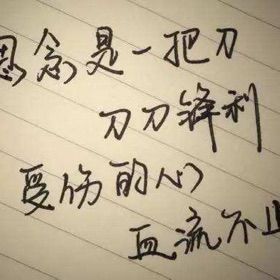 思念是一把刀
刀刀锋利
受伤的心
血流不止